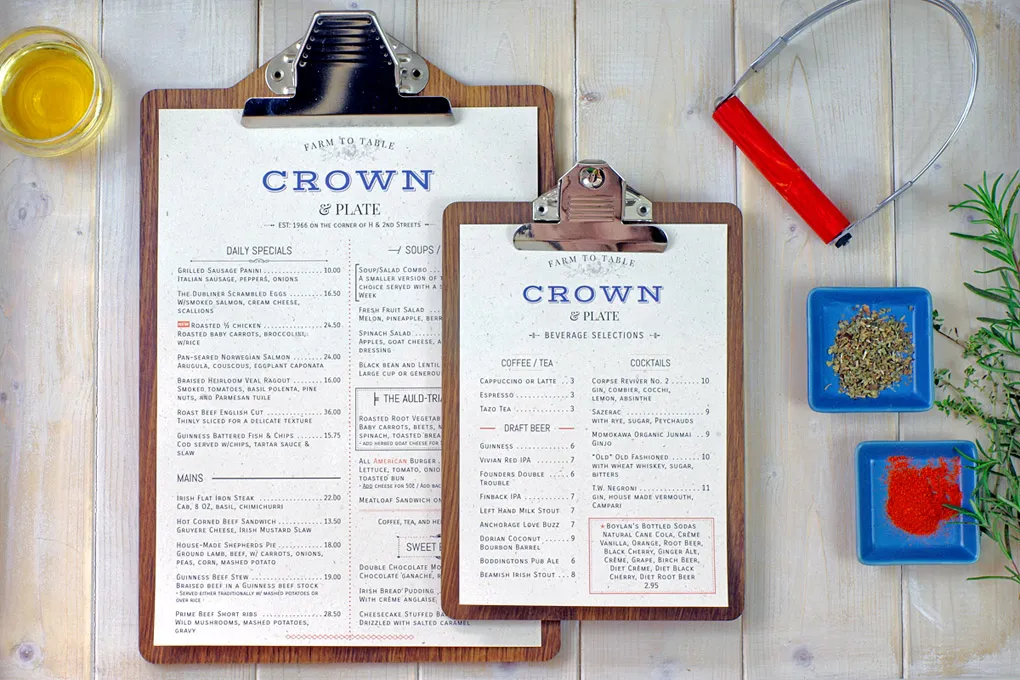 FARM TO TABLE
CROWN
& PLATE
EST: 1966 ON THE CORNER OF H & 2ND STREETS
DAILY SPECIALS
GRILLED SAUSAGE PANINI 10.00
ITALIAN SAUSAGE, PEPPERS, ONIONS
THE DUBLINER SCRAMBLED EGGS 16.50
W/SMOKED SALMON, CREAM CHEESE,
SCALLIONS
NEW ROASTED ½ CHICKEN 24.50
ROASTED BABY CARROTS, BROCCOLINI,
W/RICE
PAN-SEARED NORWEGIAN SALMON 24.00
ARUGULA, COUSCOUS, EGGPLANT CAPONATA
BRAISED HEIRLOOM VEAL RAGOUT 16.00
SMOKED TOMATOES, BASIL POLENTA, PINE
NUTS, AND PARMESAN TUILE
ROAST BEEF ENGLISH CUT 36.00
THINLY SLICED FOR A DELICATE TEXTURE
GUINNESS BATTERED FISH & CHIPS 15.75
COD SERVED W/CHIPS, TARTAR SAUCE &
SLAW
MAINS
IRISH FLAT IRON STEAK 22.00
CAB, 8 OZ, BASIL, CHIMICHURRI
HOT CORNED BEEF SANDWICH 13.50
GRUYERE CHEESE, IRISH MUSTARD SLAW
HOUSE-MADE SHEPHERDS PIE 18.00
GROUND LAMB, BEEF, W/ CARROTS, ONIONS,
PEAS, CORN, MASHED POTATO
GUINNESS BEEF STEW 19.00
BRAISED BEEF IN A GUINNESS BEEF STOCK
- SERVED EITHER TRADITIONALLY W/ MASHED POTATOES OR
OVER RICE -
PRIME BEEF SHORT RIBS 28.50
WILD MUSHROOMS, MASHED POTATOES,
GRAVY
SOUPS /
SOUP/SALAD COMBO
A SMALLER VERSION OF
CHOICE SERVED WITH A
WEEK
FRESH FRUIT SALAD
MELON, PINEAPPLE,
SPINACH SALAD
APPLES, GOAT CHEESE,
DRESSING
BLACK BEAN AND LENTIL
LARGE CUP OR
THE AULD-
ROASTED ROOT
BABY CARROTS, BEETS,
SPINACH, TOASTED
- ADD HERBED GOAT CHEESE FOR
ALL AMERICAN BURGER
LETTUCE, TOMATO,
TOASTED BUN
- ADD CHEESE FOR 50¢ / ADD
MEATLOAF SANDWICH
COFFEE, TEA, AND
SWEET
DOUBLE CHOCOLATE
CHOCOLATE GANACHE,
IRISH BREAD PUDDING
WITH CRÈME ANGLAISE,
CHEESECAKE STUFFED
DRIZZLED WITH SALTED CARAMEL
FARM TO TABLE
CROWN
& PLATE
BEVERAGE SELECTIONS
COFFEE / TEA
CAPPUCCINO OR LATTE 3
ESPRESSO 3
TAZO TEA 3
DRAFT BEER
GUINNESS 6
VIVIAN RED IPA 7
FOUNDERS DOUBLE 6
TROUBLE
FINBACK IPA 7
LEFT HAND MILK STOUT 7
ANCHORAGE LOVE BUZZ 7
DORIAN COCONUT 9
BOURBON BARREL
BODDINGTONS PUB ALE 6
BEAMISH IRISH STOUT 8
COCKTAILS
CORPSE REVIVER NO. 2 10
GIN, COMBIER, COCCHI,
LEMON, ABSINTHE
SAZERAC 9
WITH RYE, SUGAR, PEYCHAUDS
MOMOKAWA ORGANIC JUNMAI 9
GINJO
"OLD" OLD FASHIONED 10
WITH WHEAT WHISKEY, SUGAR,
BITTERS
T.W. NEGRONI 11
GIN, HOUSE MADE VERMOUTH,
CAMPARI
BOYLAN'S BOTTLED SODAS
NATURAL CANE COLA, CRÈME
VANILLA, ORANGE, ROOT BEER,
BLACK CHERRY, GINGER ALE,
CRÈME, GRAPE, BIRCH BEER,
DIET CRÈME, DIET BLACK
CHERRY, DIET ROOT BEER
2.95